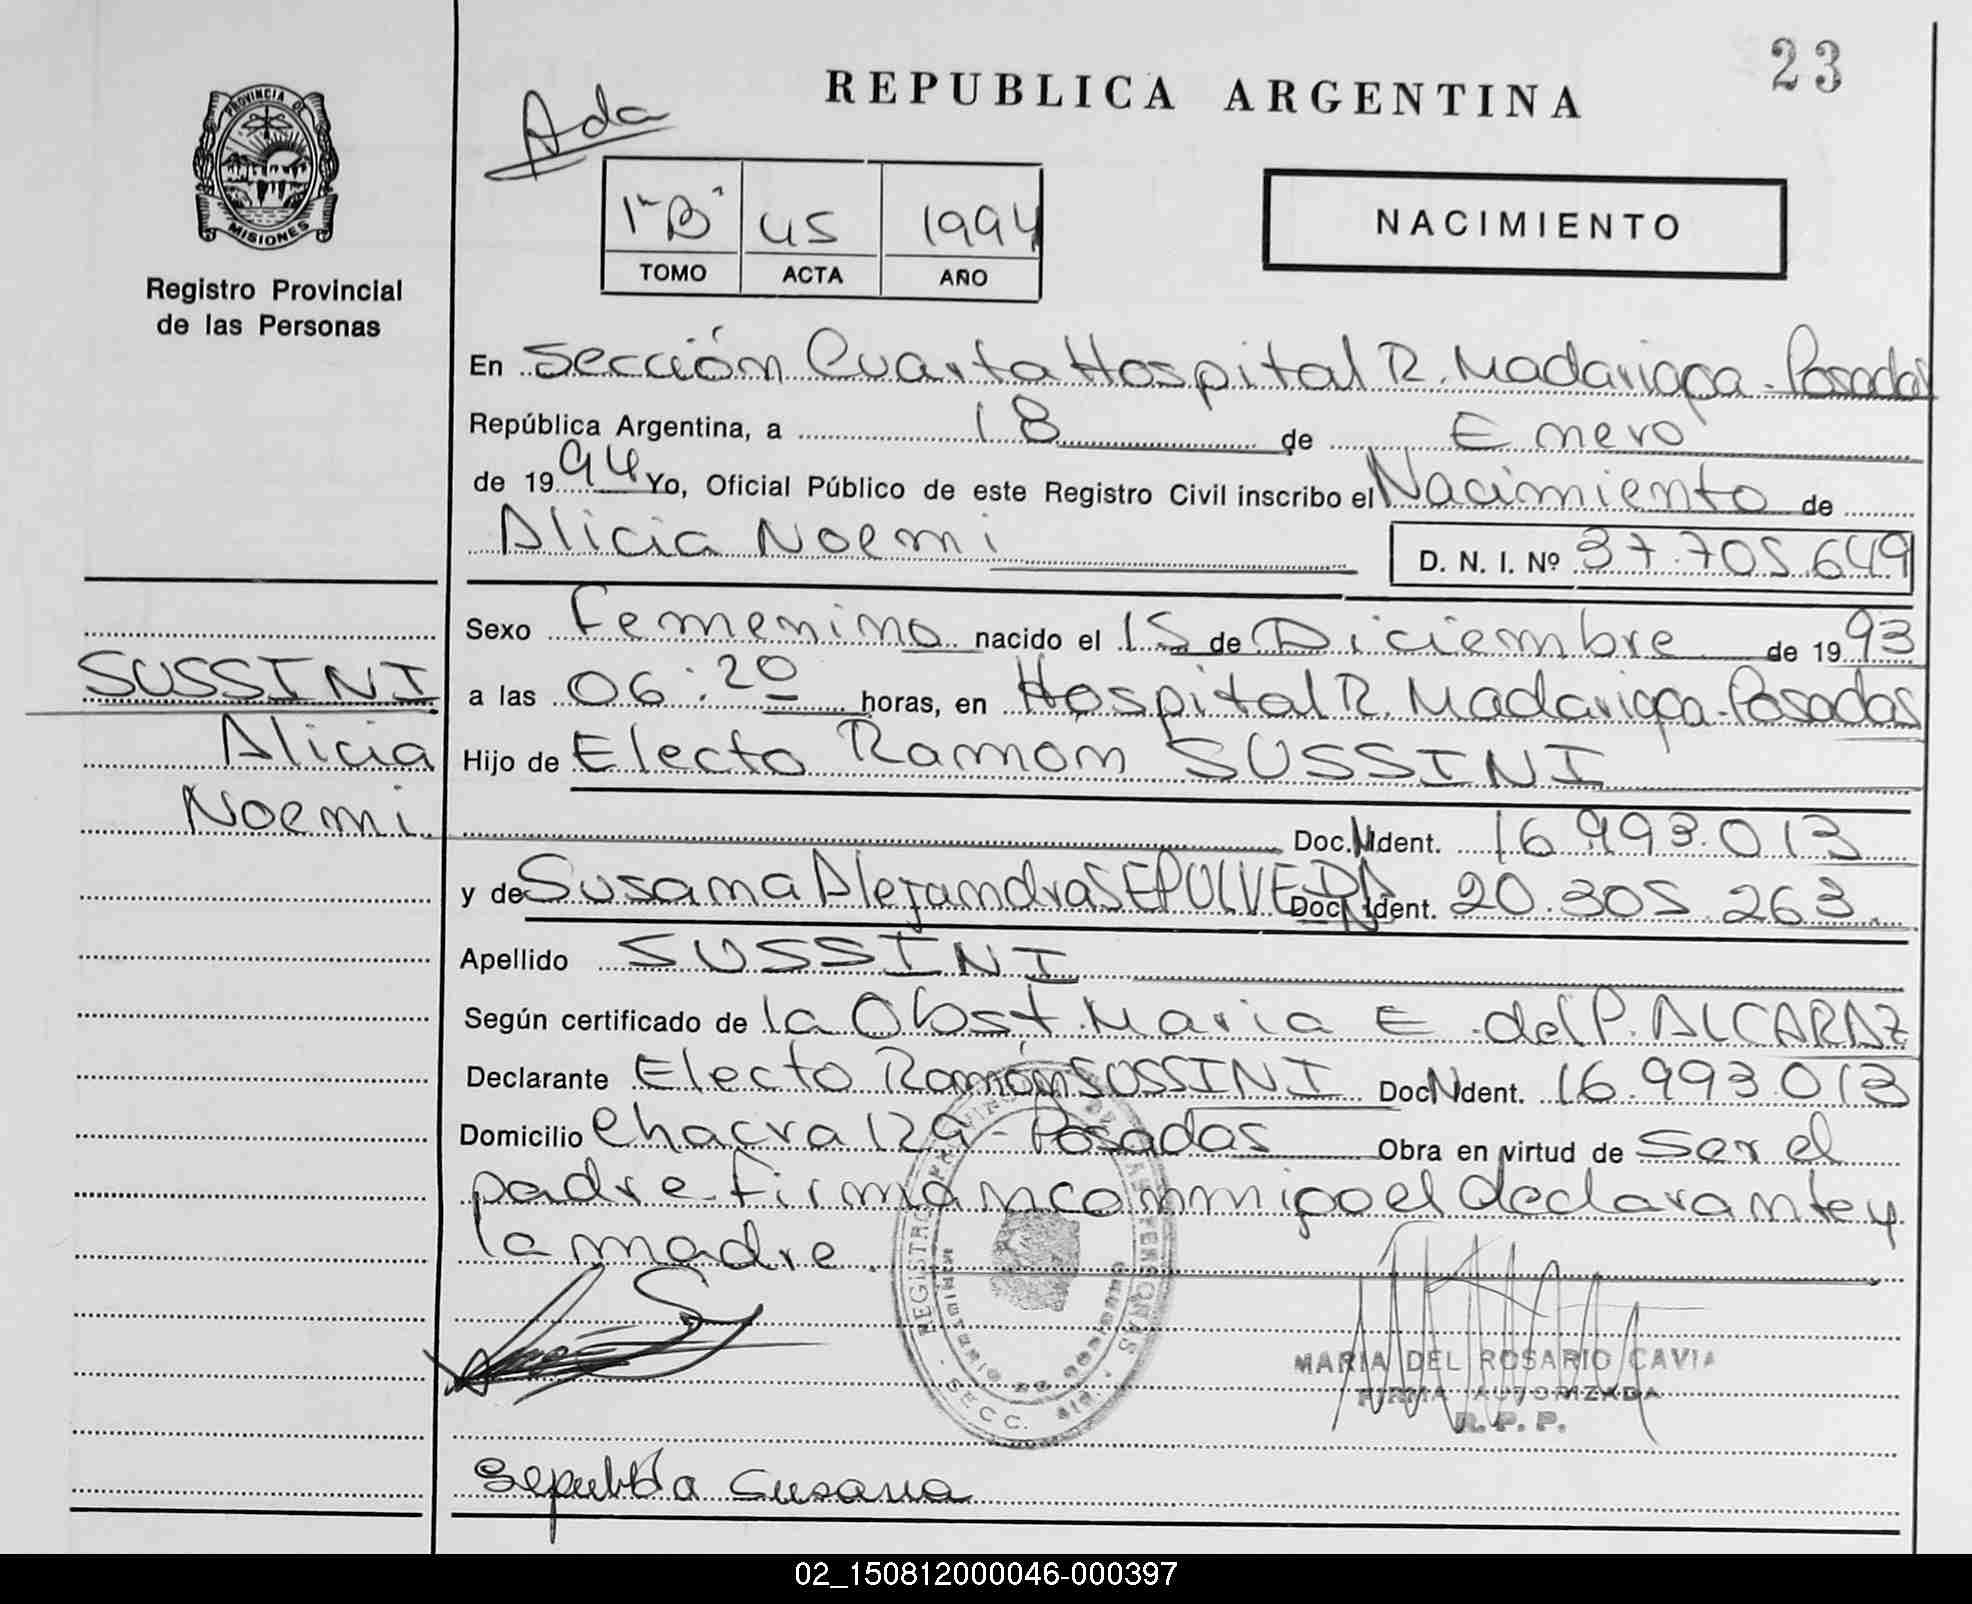 23
REPUBLICA ARGENTINA
Ada
PROVINCIA DE
MISIONES
Registro Provincial
de las Personas
1º "B" 45 1994
TOMO ACTA AÑO
NACIMIENTO
En Sección Cuarta Hospital R. Madariaga - Posadas
República Argentina, a 18 de Enero
de 1994 Yo, Oficial Público de este Registro Civil inscribo el Nacimiento de
Alicia Noemi D. N. I. Nº 37.705.649
Sexo Femenino nacido el 15 de Diciembre de 1993
SUSSINI
a las 06:20 horas, en Hospital R. Madariaga - Posadas
Alicia
Hijo de Electo Ramon SUSSINI
Noemi
Doc. N Ident. 16.993.013
y de Susana Alejandra SEPULVEDA Doc. N Ident. 20.305.263
Apellido SUSSINI
Según certificado de la Obst. Maria E. del P. ALCARAZ
Declarante Electo Ramón SUSSINI Doc N Ident. 16.993.013
Domicilio Chacra 129 - Posadas Obra en virtud de ser el
padre. Firman conmigo el declarante y
la madre.
MARIA DEL ROSARIO CAVIA
FIRMA AUTORIZADA
R. P. P.
Sepulveda Susana
02_150812000046-000397